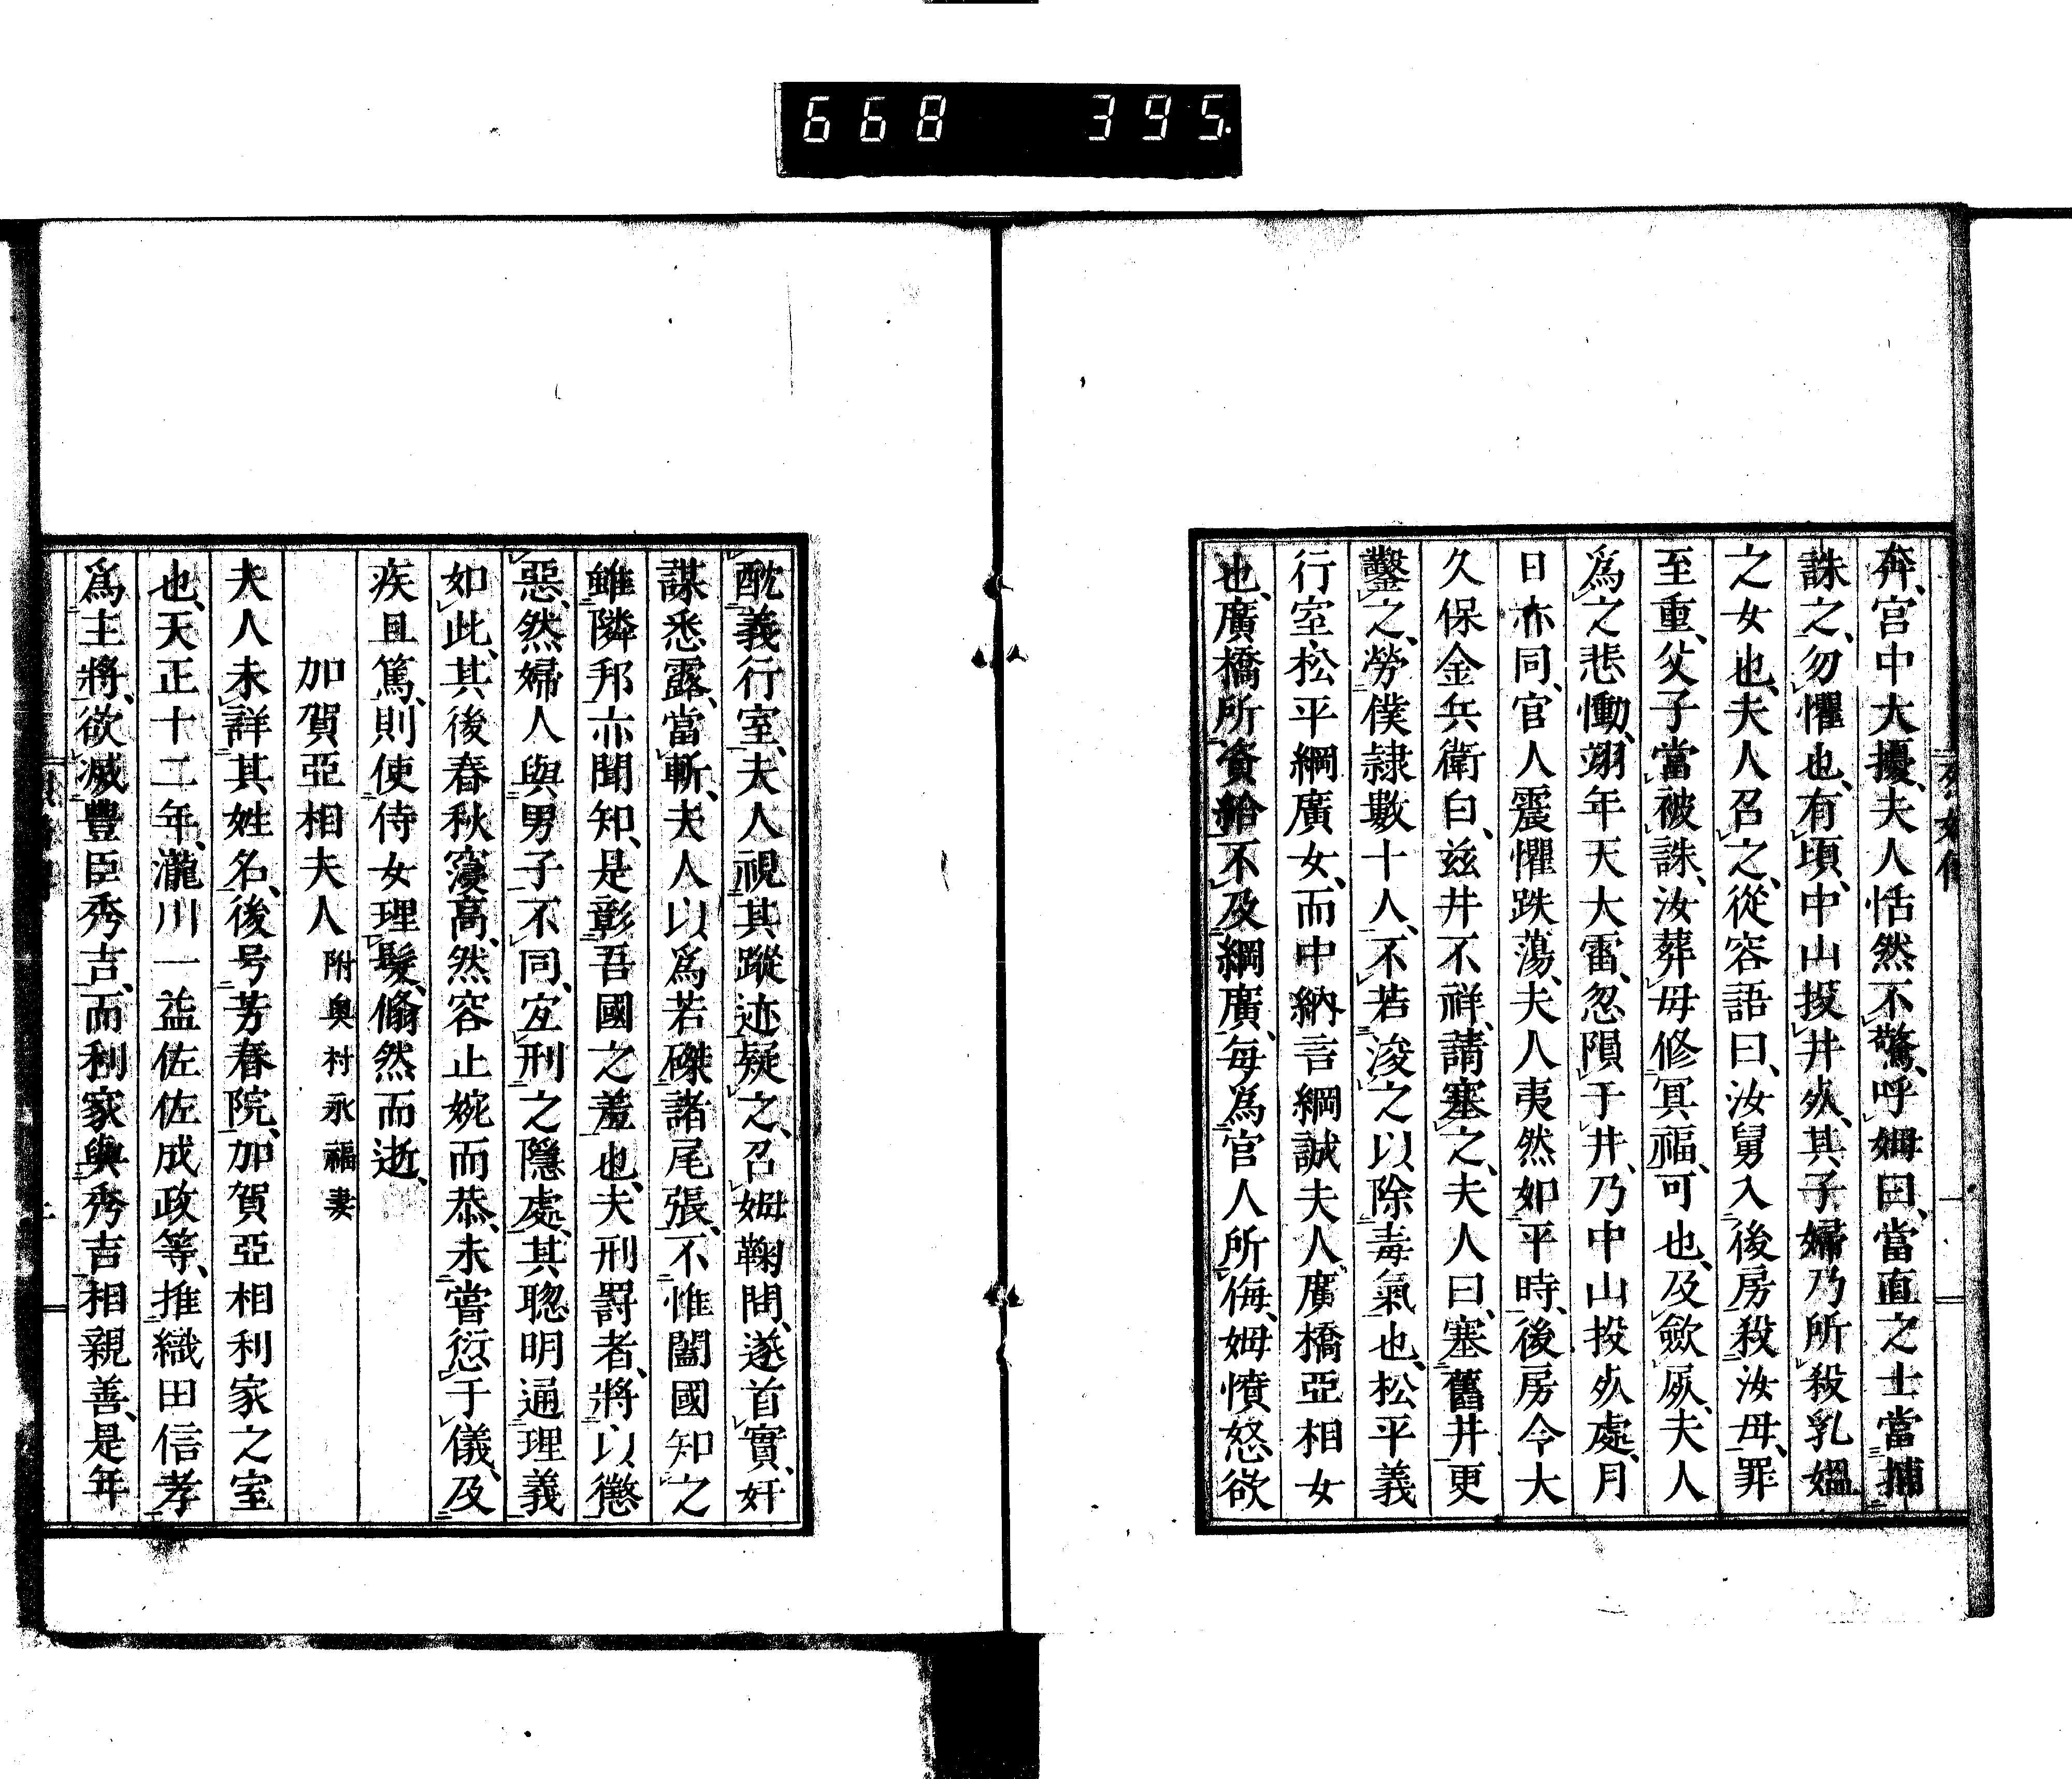 668 395
奔、宮中大擾、夫人恬然不驚、呼姆曰、當直之士當捕
誅之、勿懼也、有頃、中山投井死、其子婦乃所殺乳媼
之女也、夫人召之、從容語曰、汝舅入後房殺汝母、罪
至重、父子當被誅、汝葬母修冥福、可也、及斂屍、夫人
爲之悲慟、翊年天大雷、忽隕于井、乃中山投死處、月
日亦同、官人震懼跌蕩、夫人夷然如平時、後房令大
久保金兵衛白、玆井不祥、請塞之、夫人曰、塞舊井更
鑿之、勞僕隷數十人、不若浚之以除毒氣也、松平義
行室、松平綱廣女、而中納言綱誠夫人、廣橋亞相女
也、廣橋所資給不及綱廣、每爲官人所侮、姆憤怒欲
酖義行室、夫人視其蹤迹疑之、召姆鞠問、遂首實、奸
謀悉露、當斬、夫人以爲若磔諸尾張、不惟闔國知之
雖隣邦亦聞知、是彰吾國之羞也、夫刑罸者、將以懲
惡、然婦人與男子不同、宜刑之隱處、其聰明通理義
如此、其後春秋寖高、然容止婉而恭、未嘗愆于儀、及
疾且篤、則使侍女理髮、翛然而逝、
加賀亞相夫人 附奥村永福妻
夫人未詳其姓名、後号芳春院、加賀亞相利家之室
也、天正十二年、瀧川一益佐佐成政等、推織田信孝
爲主將、欲滅豐臣秀吉、而利家與秀吉相親善、是年